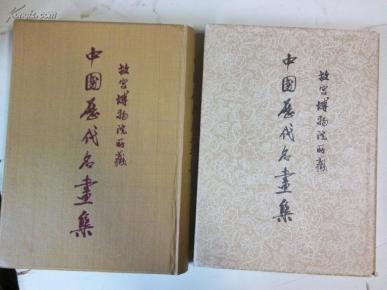 故宫博物院所藏
中國歷代名畫集
故宫博物院所藏
中國歷代名畫集